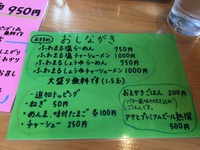 950円
おすすめ
おしながき
ふわまる塩らーめん 750円
ふわまる塩チャーシューメン 1000円
ふわまるしょうゆらーめん 750円
ふわまるしょうゆチャーシューメン 1000円
大盛り無料です(1.5玉)
・追加トッピング
・ねぎ 50円
・めんま、味付たまご 各100円
・チャーシュー 250円
おまかせごはん 200円
ごはんです。
アサヒプレミアムビール熟撰
500円